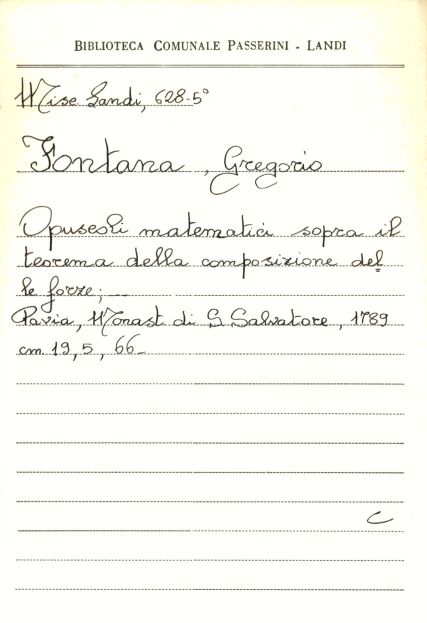 BIBLIOTECA COMUNALE PASSERINI - LANDI
Misc Landi, 628-5°
Fontana, Gregorio
Opuscoli matematici sopra il
teorema della composizione del
le forze; —
Pavia, Monast di S Salvatore, 1789
cm 19,5, 66-
C